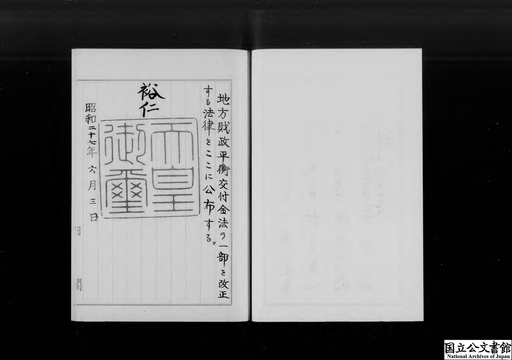 地方財政平衡交付金法の一部を改正
する法律をここに公布する。
裕仁
天皇
御璽
昭和二十七年六月三日
国立公文書館
National Archives of Japan